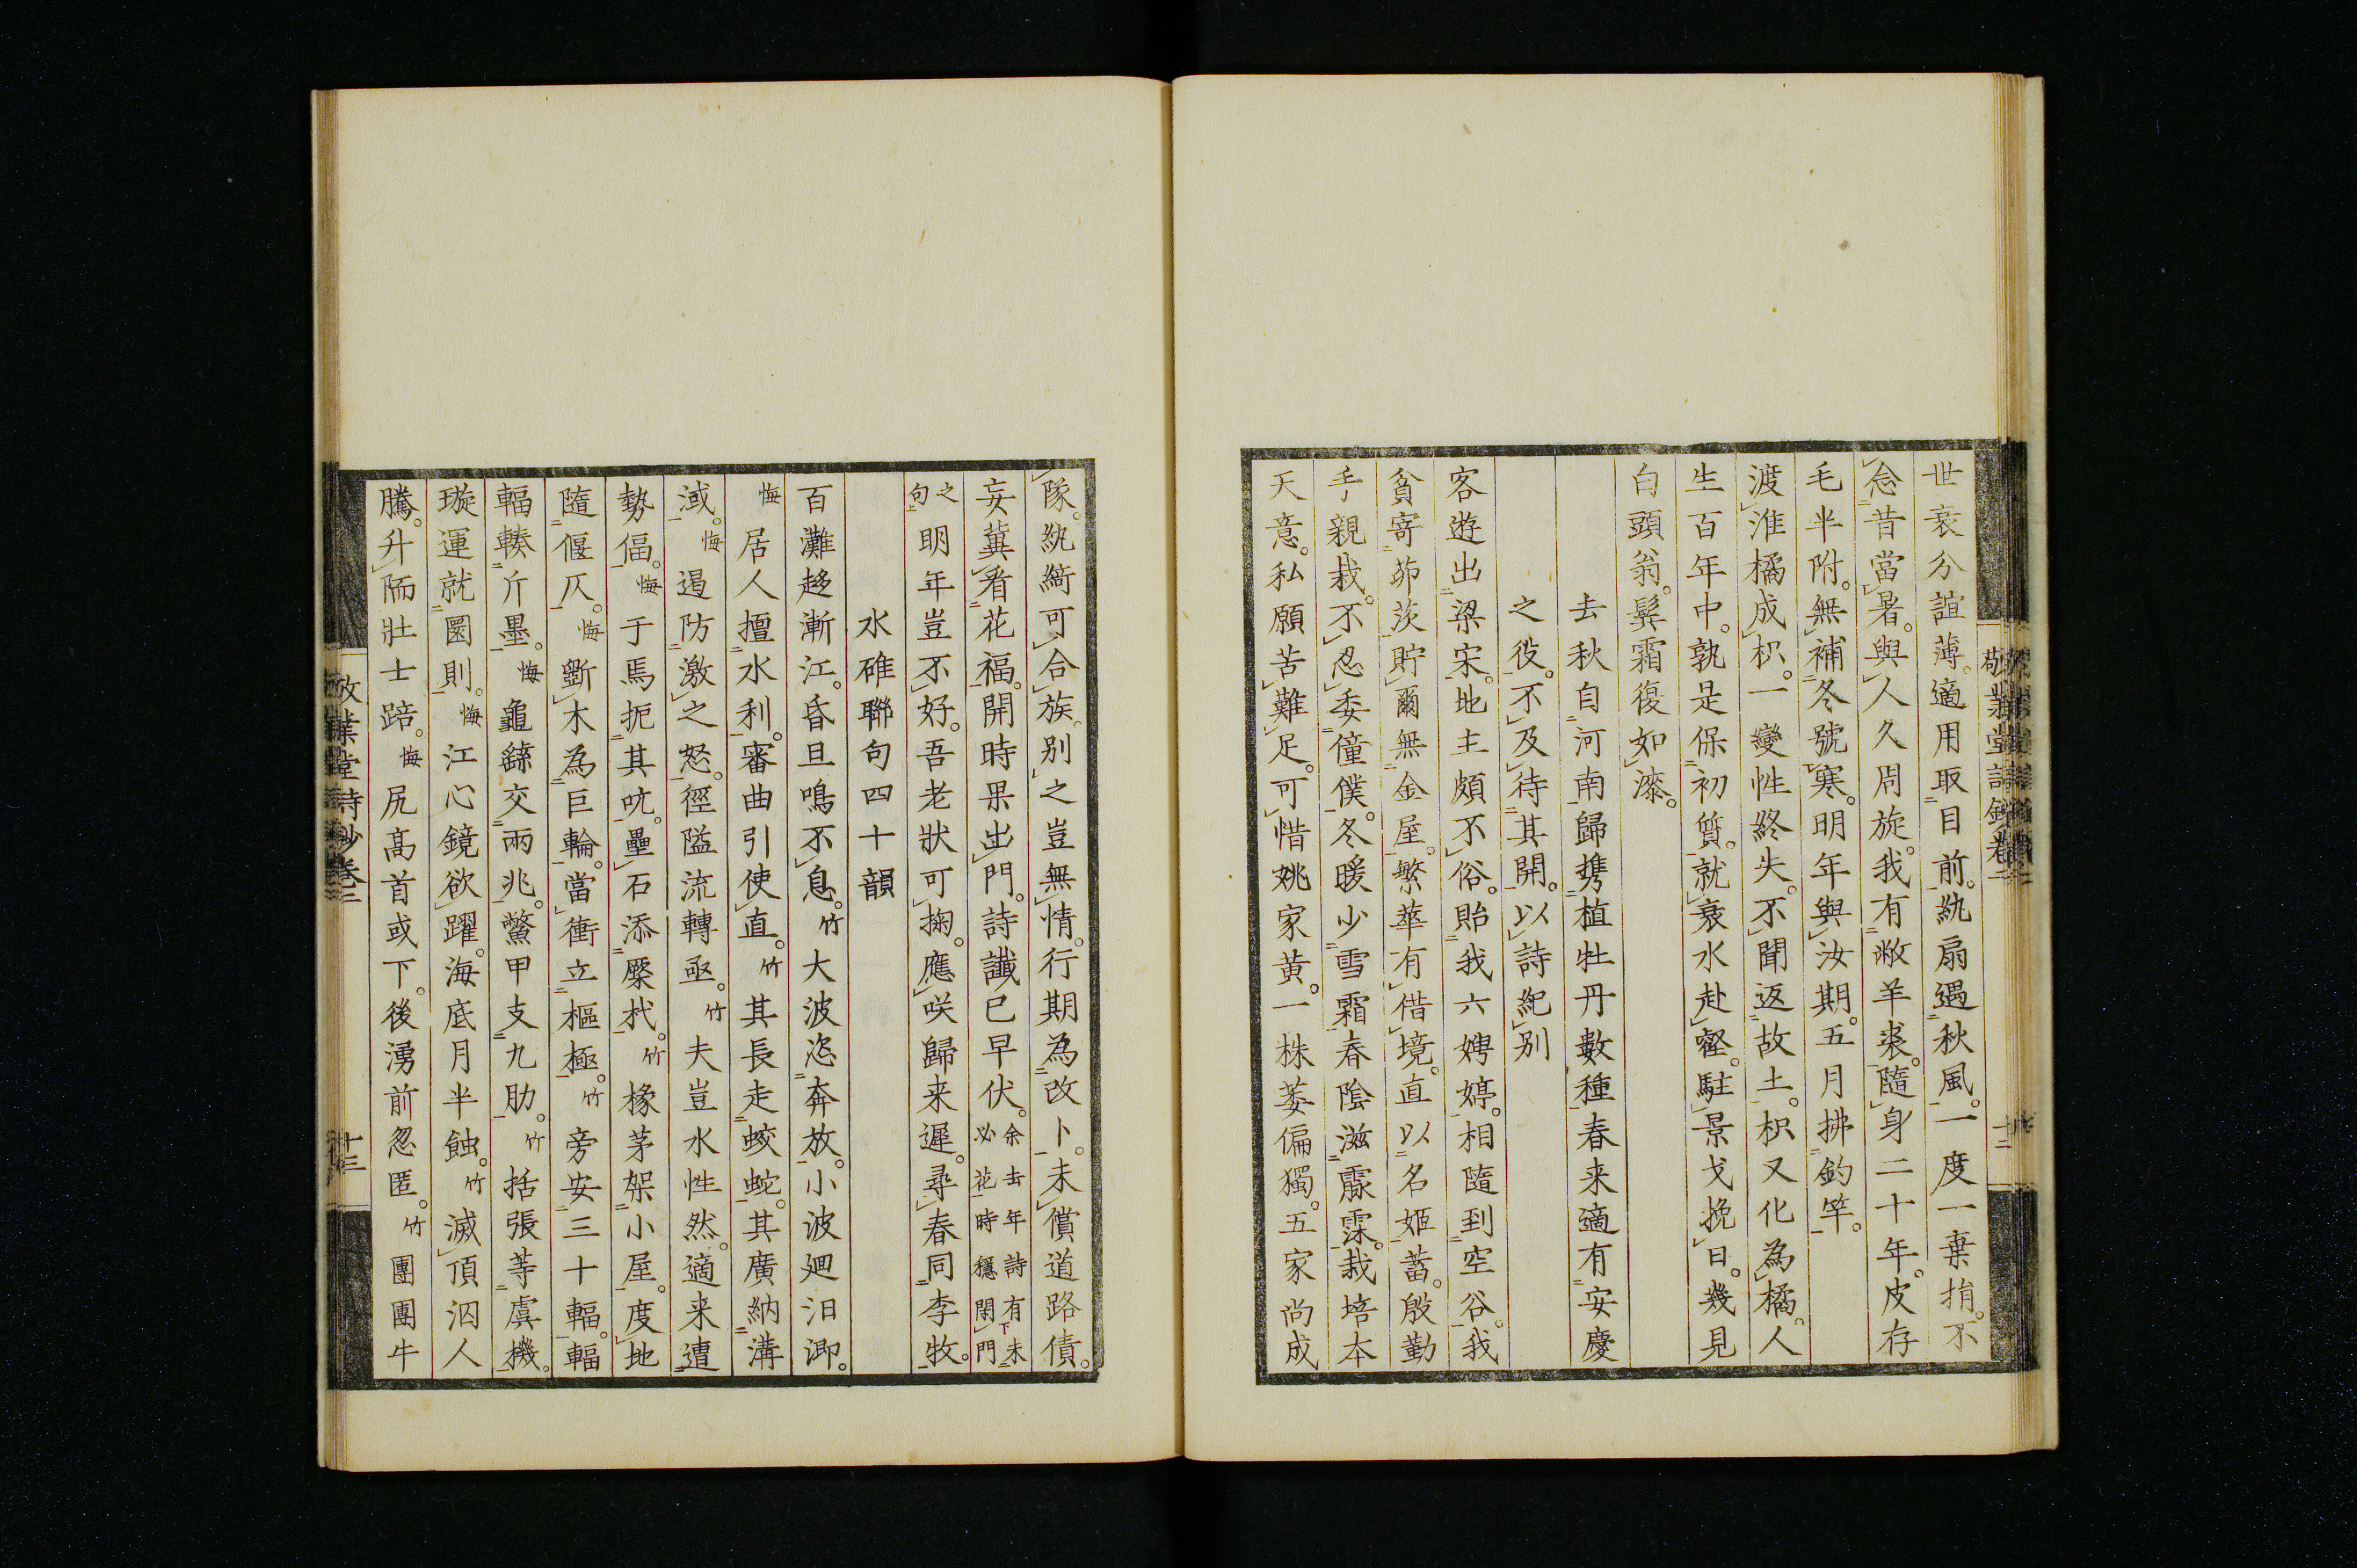 世衰分誼薄。適用取目前。紈扇遇秋風。一度一棄捐。不
念昔當暑。與人久周旋。我有敝羊裘。隨身二十年。皮存
毛半附。無補冬號寒。明年與汝期。五月拂釣竿。
渡淮橘成枳。一變性終失。不聞返故土。枳又化為橘。人
生百年中。孰是保初質。就衰水赴壑。駐景戈挽日。幾見
白頭翁。鬂霜復如漆。
去秋自河南歸携植牡丹數種春来適有安慶
之役。不及待其開。以詩紀別
客遊出梁宋。地主頗不俗。貽我六娉婷。相隨到空谷。我
貧寄茆茨。貯爾無金屋。繁華有借境。直以名姬蓄。殷勤
手親栽。不忍委僮僕。冬暖少雪霜。春陰滋霢霂。栽培本
天意。私願苦難足。可惜姚家黄。一株萎偏獨。五家尚成
敬業堂詩鈔卷二
十二
隊。紈綺可合族。别之豈無情。行期為改卜。未償道路債。
妄冀看花福。開時果出門。詩讖已早伏。余去年詩有未必花時穩閉門
之句明年豈不好。吾老狀可掬。應咲歸来遲。尋春同李牧。
水碓聯句四十韻
百灘趍漸江。昏旦鳴不息。竹大波恣奔放。小波廻汨㴉。
悔居人擅水利。審曲引使直。竹其長走蛟蛇。其廣納溝
淢。悔遏防激之怒。徑隘流轉亟。竹夫豈水性然。適来遭
勢偪。悔于焉扼其吭。壘石添橜杙。竹椽茅架小屋。度地
隨偃仄。悔斵木為巨輪。當衝立樞極。竹旁安三十輻。輻
輻輳斤墨。悔龜繇交兩兆。鱉甲支九肋。竹括張等虞機。
璇運就圜則。悔江心鏡欲躍。海底月半蝕。竹滅頂泅人
騰。升陑壯士踣。悔尻高首或下。後湧前忽匿。竹團團牛
敬業堂詩鈔卷二
十三